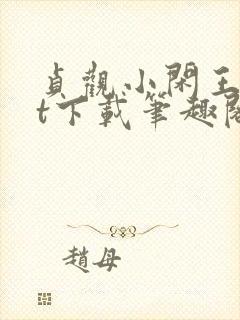 貞觀小閑王
t下載筆趣閣
趙母